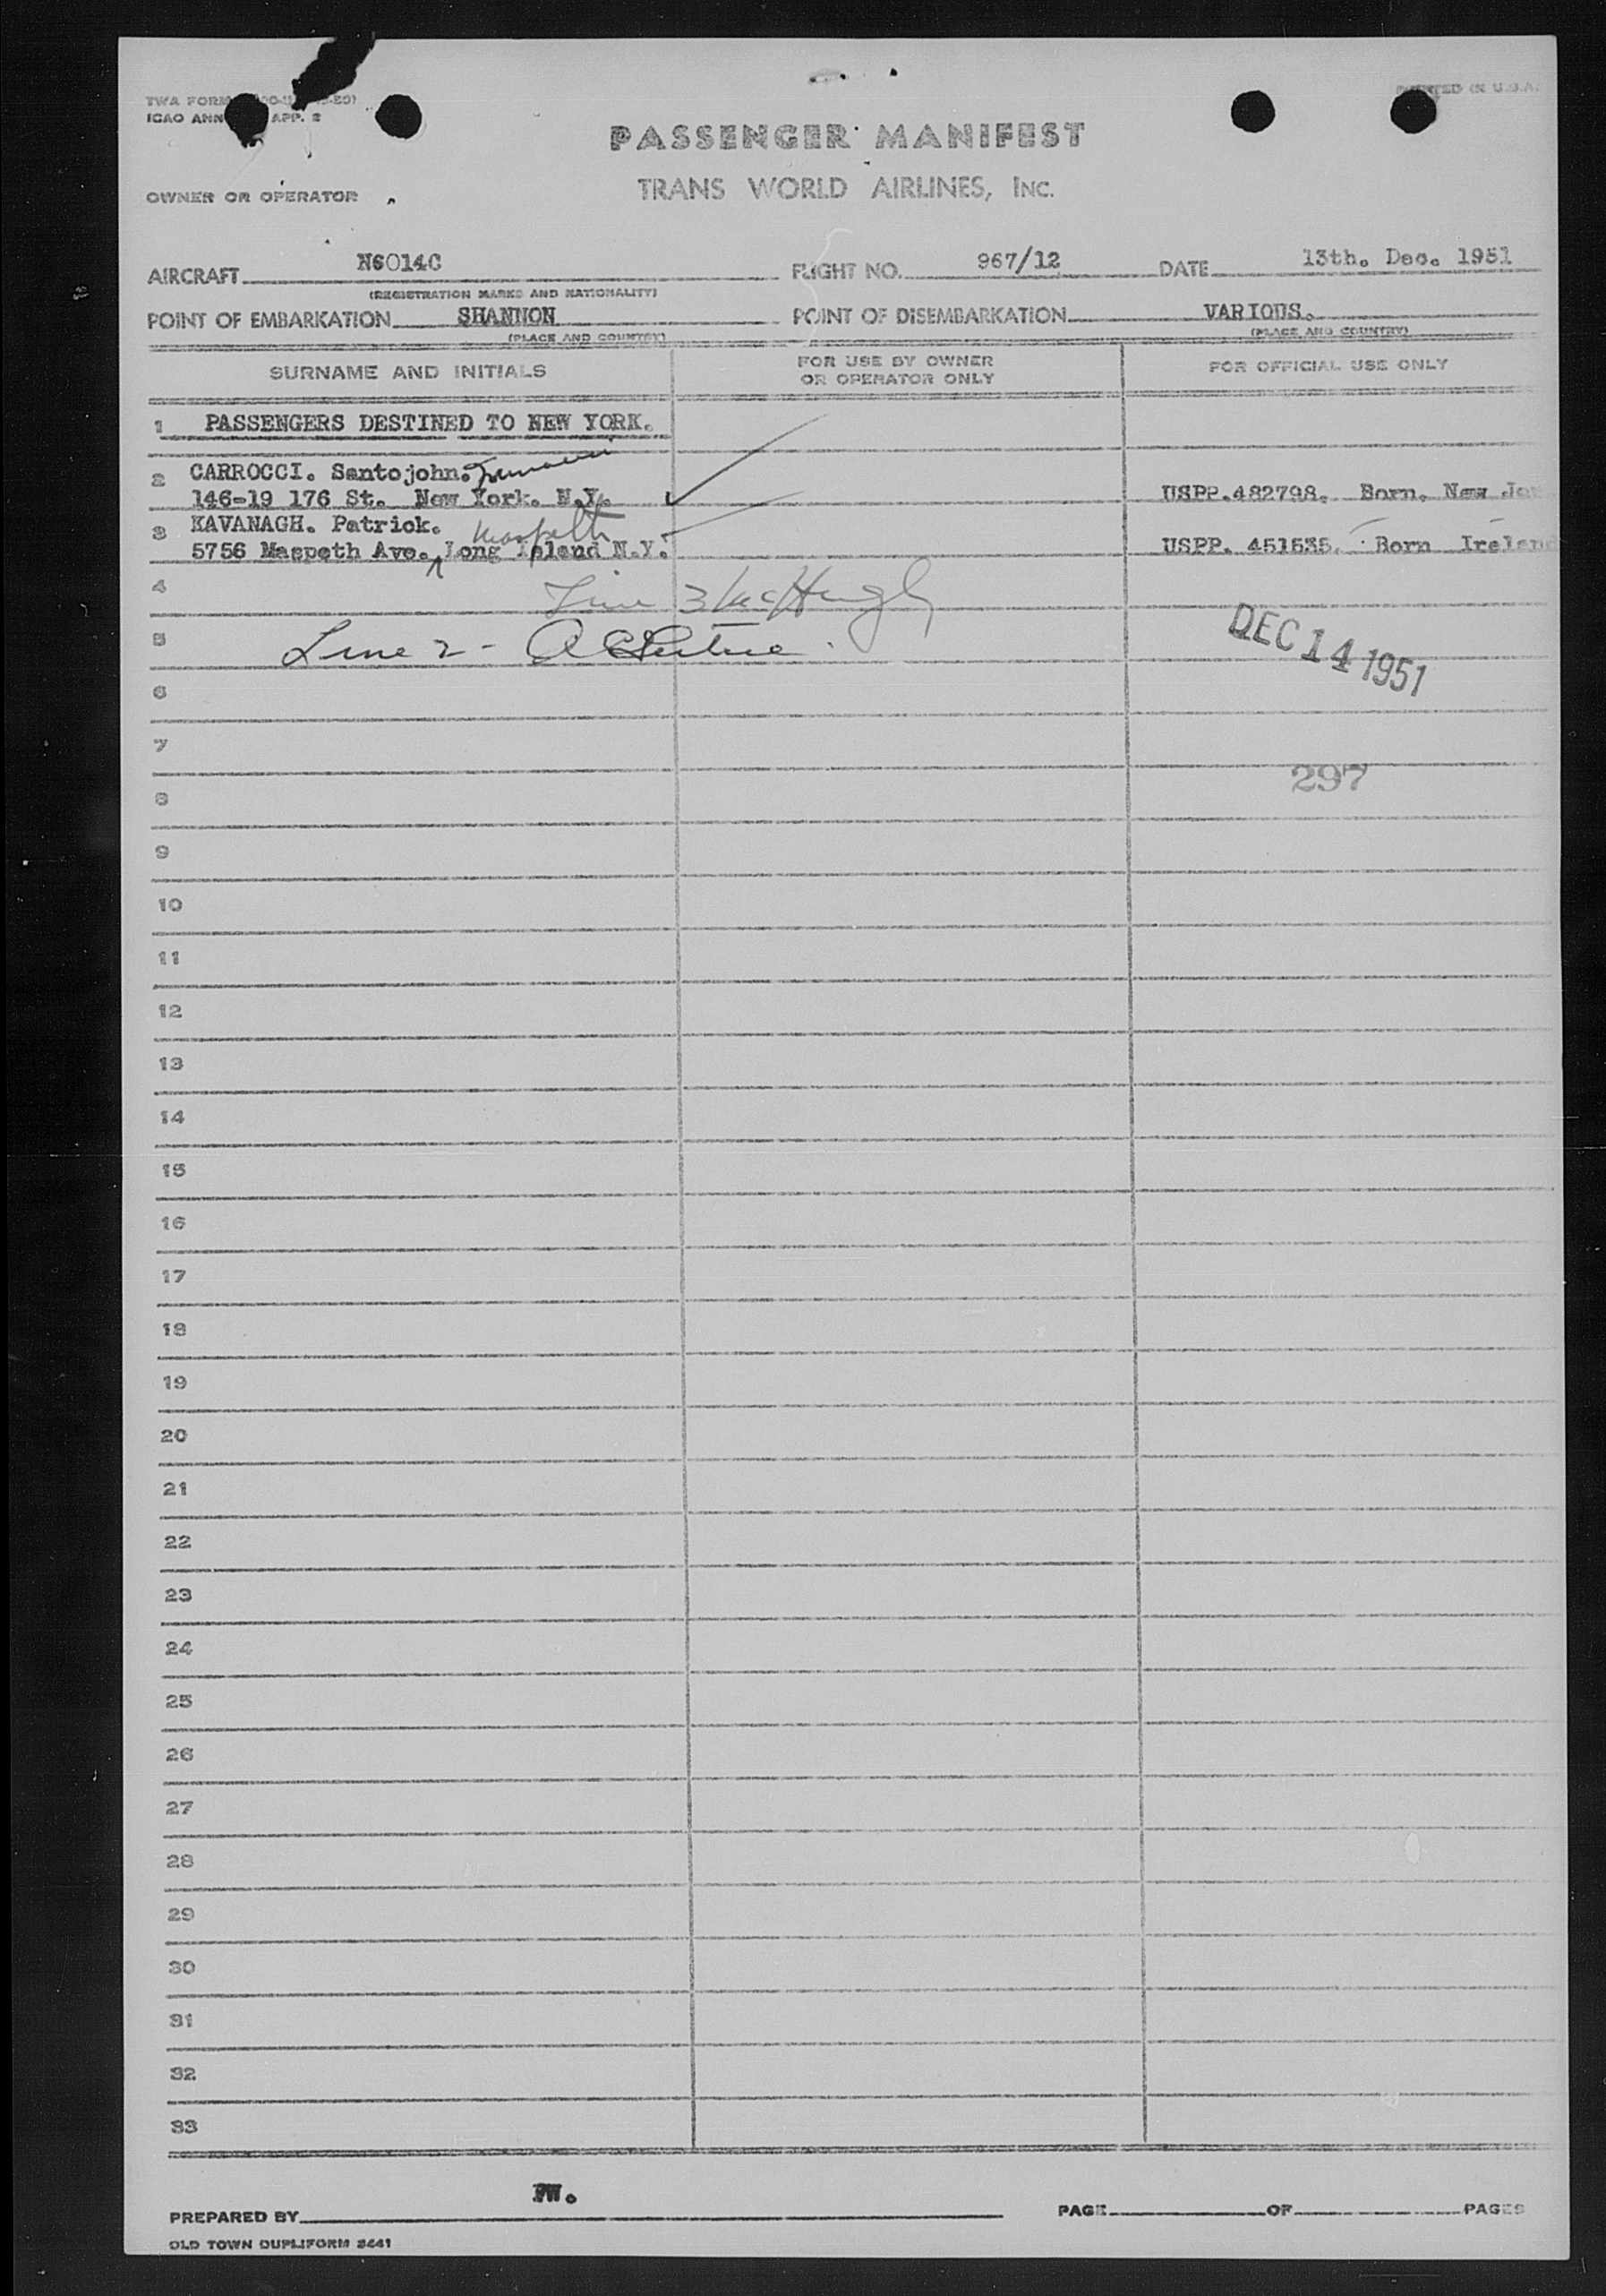 TWA FORM
PRINTED IN U.S.A.
ICAO ANN APP. 2
PASSENGER MANIFEST
OWNER OR OPERATOR
TRANS WORLD AIRLINES, INC.
AIRCRAFT N6014C FLIGHT NO. 967/12 DATE 13th. Dec. 1951
(REGISTRATION MARKS AND NATIONALITY)
POINT OF EMBARKATION SHANNON POINT OF DISEMBARKATION VARIOUS.
(PLACE AND COUNTRY) (PLACE AND COUNTRY)
SURNAME AND INITIALS FOR USE BY OWNER OR OPERATOR ONLY FOR OFFICIAL USE ONLY
1 PASSENGERS DESTINED TO NEW YORK.
2 CARROCCI. Santojohn.
146-19 176 St. New York. N.Y. USPP.482798. Born. New Je
3 KAVANAGH. Patrick. Maspeth
5756 Maspeth Ave. Long Island N.Y. USPP. 451535. Born Ireland
4 Line 3 McHugh
5 Line 2 -
DEC 14 1951
6
7
297
8
9
10
11
12
13
14
15
16
17
18
19
20
21
22
23
24
25
26
27
28
29
30
31
32
33
PREPARED BY PW. PAGE OF PAGES
OLD TOWN DUPLIFORM 8441